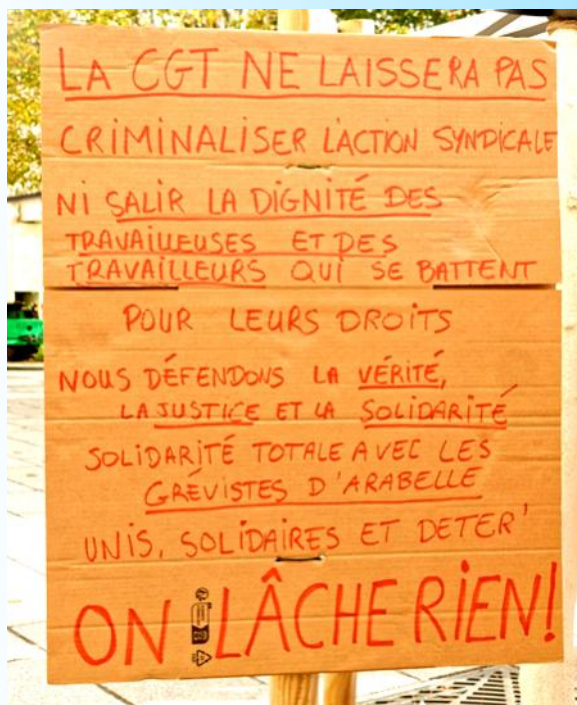 LA CGT NE LAISSERA PAS
CRIMINALISER L'ACTION SYNDICALE
NI SALIR LA DIGNITÉ DES
TRAVAILLEUSES ET DES
TRAVAILLEURS QUI SE BATTENT
POUR LEURS DROITS
NOUS DÉFENDONS LA VÉRITÉ,
LA JUSTICE ET LA SOLIDARITÉ
SOLIDARITÉ TOTALE AVEC LES
GRÉVISTES D'ARABELLE
UNIS, SOLIDAIRES ET DETER'
ON LÂCHE RIEN!